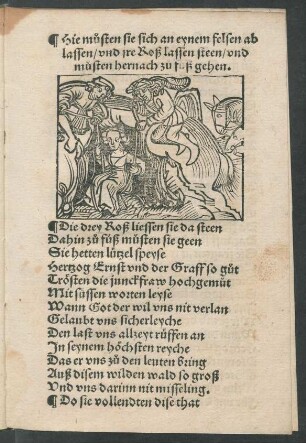 ¶ Hie můsten sie sich an eynem felsen ab
lassen/vnd yre Roß lassen steen/vnd
můsten hernach zů fuß gehen.
¶ Die drey Roß liessen sie da steen
Dahin zů fůß můsten sie geen
Sie hetten lützel speyse
Hertzog Ernst vnd der Graff so gůt
Trösten die junckfraw hochgemůt
Mit süssen worten leyse
Wann Got der wil vns nit verlan
Gelaubt vns sicherleyche
Den last vns allzeyt růffen an
In seynem höchsten reyche
Das er vns zů den leuten bring
Auß disem wilden wald so groß
Vnd vns darinn nit misseling.
¶ Do sie vollendten dise that